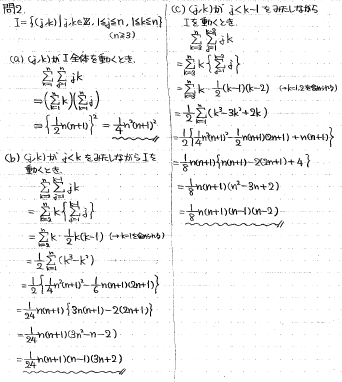 問2.
I={(j,k)|j,k∈Z, 1≦j≦n, 1≦k≦n}
(n≧3)
(a) (j,k)が I全体を動くとき、
∑_{k=1}^{n} ∑_{j=1}^{n} jk
= (∑_{k=1}^{n} k)(∑_{j=1}^{n} j)
= {1/2 n(n+1)}² = 1/4 n²(n+1)²
(b) (j,k)が j<k をみたしながら Iを
動くとき、
∑_{k=2}^{n} ∑_{j=1}^{k-1} jk
= ∑_{k=2}^{n} k{∑_{j=1}^{k-1} j}
= ∑_{k=2}^{n} k・1/2 k(k-1) (→k=1を含められる)
= 1/2 ∑_{k=1}^{n} (k³-k²)
= 1/2 {1/4 n²(n+1)² - 1/6 n(n+1)(2n+1)}
= 1/24 n(n+1){3n(n+1)-2(2n+1)}
= 1/24 n(n+1)(3n²-n-2)
= 1/24 n(n+1)(n-1)(3n+2)
(c) (j,k)が j<k-1 をみたしながら
Iを動くとき、
∑_{k=3}^{n} ∑_{j=1}^{k-2} jk
= ∑_{k=3}^{n} k{∑_{j=1}^{k-2} j}
= ∑_{k=3}^{n} k・1/2 (k-1)(k-2) (→k=1,2を含められる)
= 1/2 ∑_{k=1}^{n} (k³-3k²+2k)
= 1/2 {1/4 n²(n+1)² - 1/2 n(n+1)(2n+1) + n(n+1)}
= 1/8 n(n+1){n(n+1)-2(2n+1)+4}
= 1/8 n(n+1)(n²-3n+2)
= 1/8 n(n+1)(n-1)(n-2)